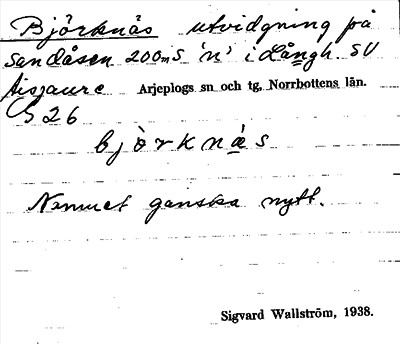 Björknäs utvidgning på
sandåsen 200 m S 'n' i Långh. SV
Aisjaure Arjeplogs sn och tg, Norrbottens län.
S 26
björknäs
Namnet ganska nytt.
Sigvard Wallström, 1938.